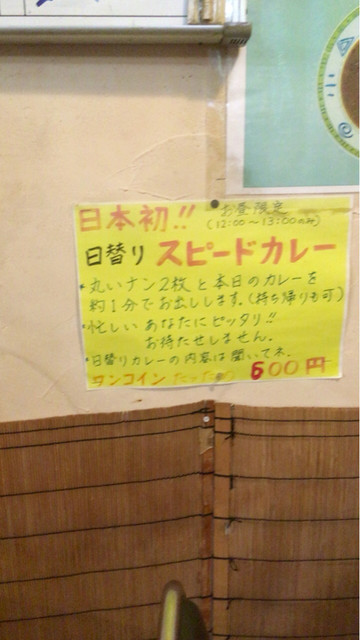 日本初!! お昼限定
(12:00〜13:00のみ)
日替り スピードカレー
・丸いナン2枚と本日のカレーを
約1分でお出しします。(持ち帰りも可)
・忙しいあなたにピッタリ!!
お待たせしません。
・日替りカレーの内容は聞いてネ.
ワンコイン たったの 600円